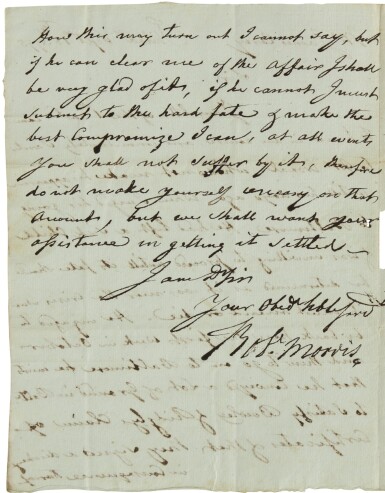 How this may turn out I cannot say, but
if he can clear me of the Affair I shall
be very glad of it, if he cannot I must
submit to the hard fate & make the
best Compromize I can, at all events
you shall not suffer by it, therefore
do not make yourself uneasy on that
Account, but we shall want your
assistance in getting it settled
I am D Sir
Your Obedt hble Servt
Robt Morris